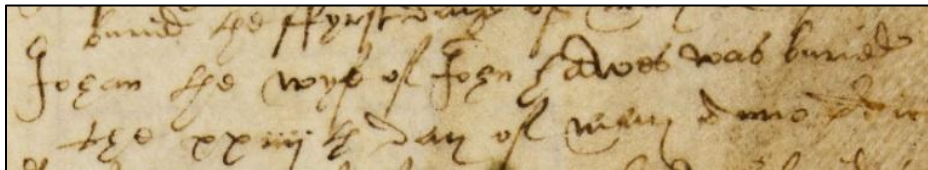 buried the ffyrst daye of
Johan the wyf of John hawes was buried
the xxiiij th day of may Anno dni